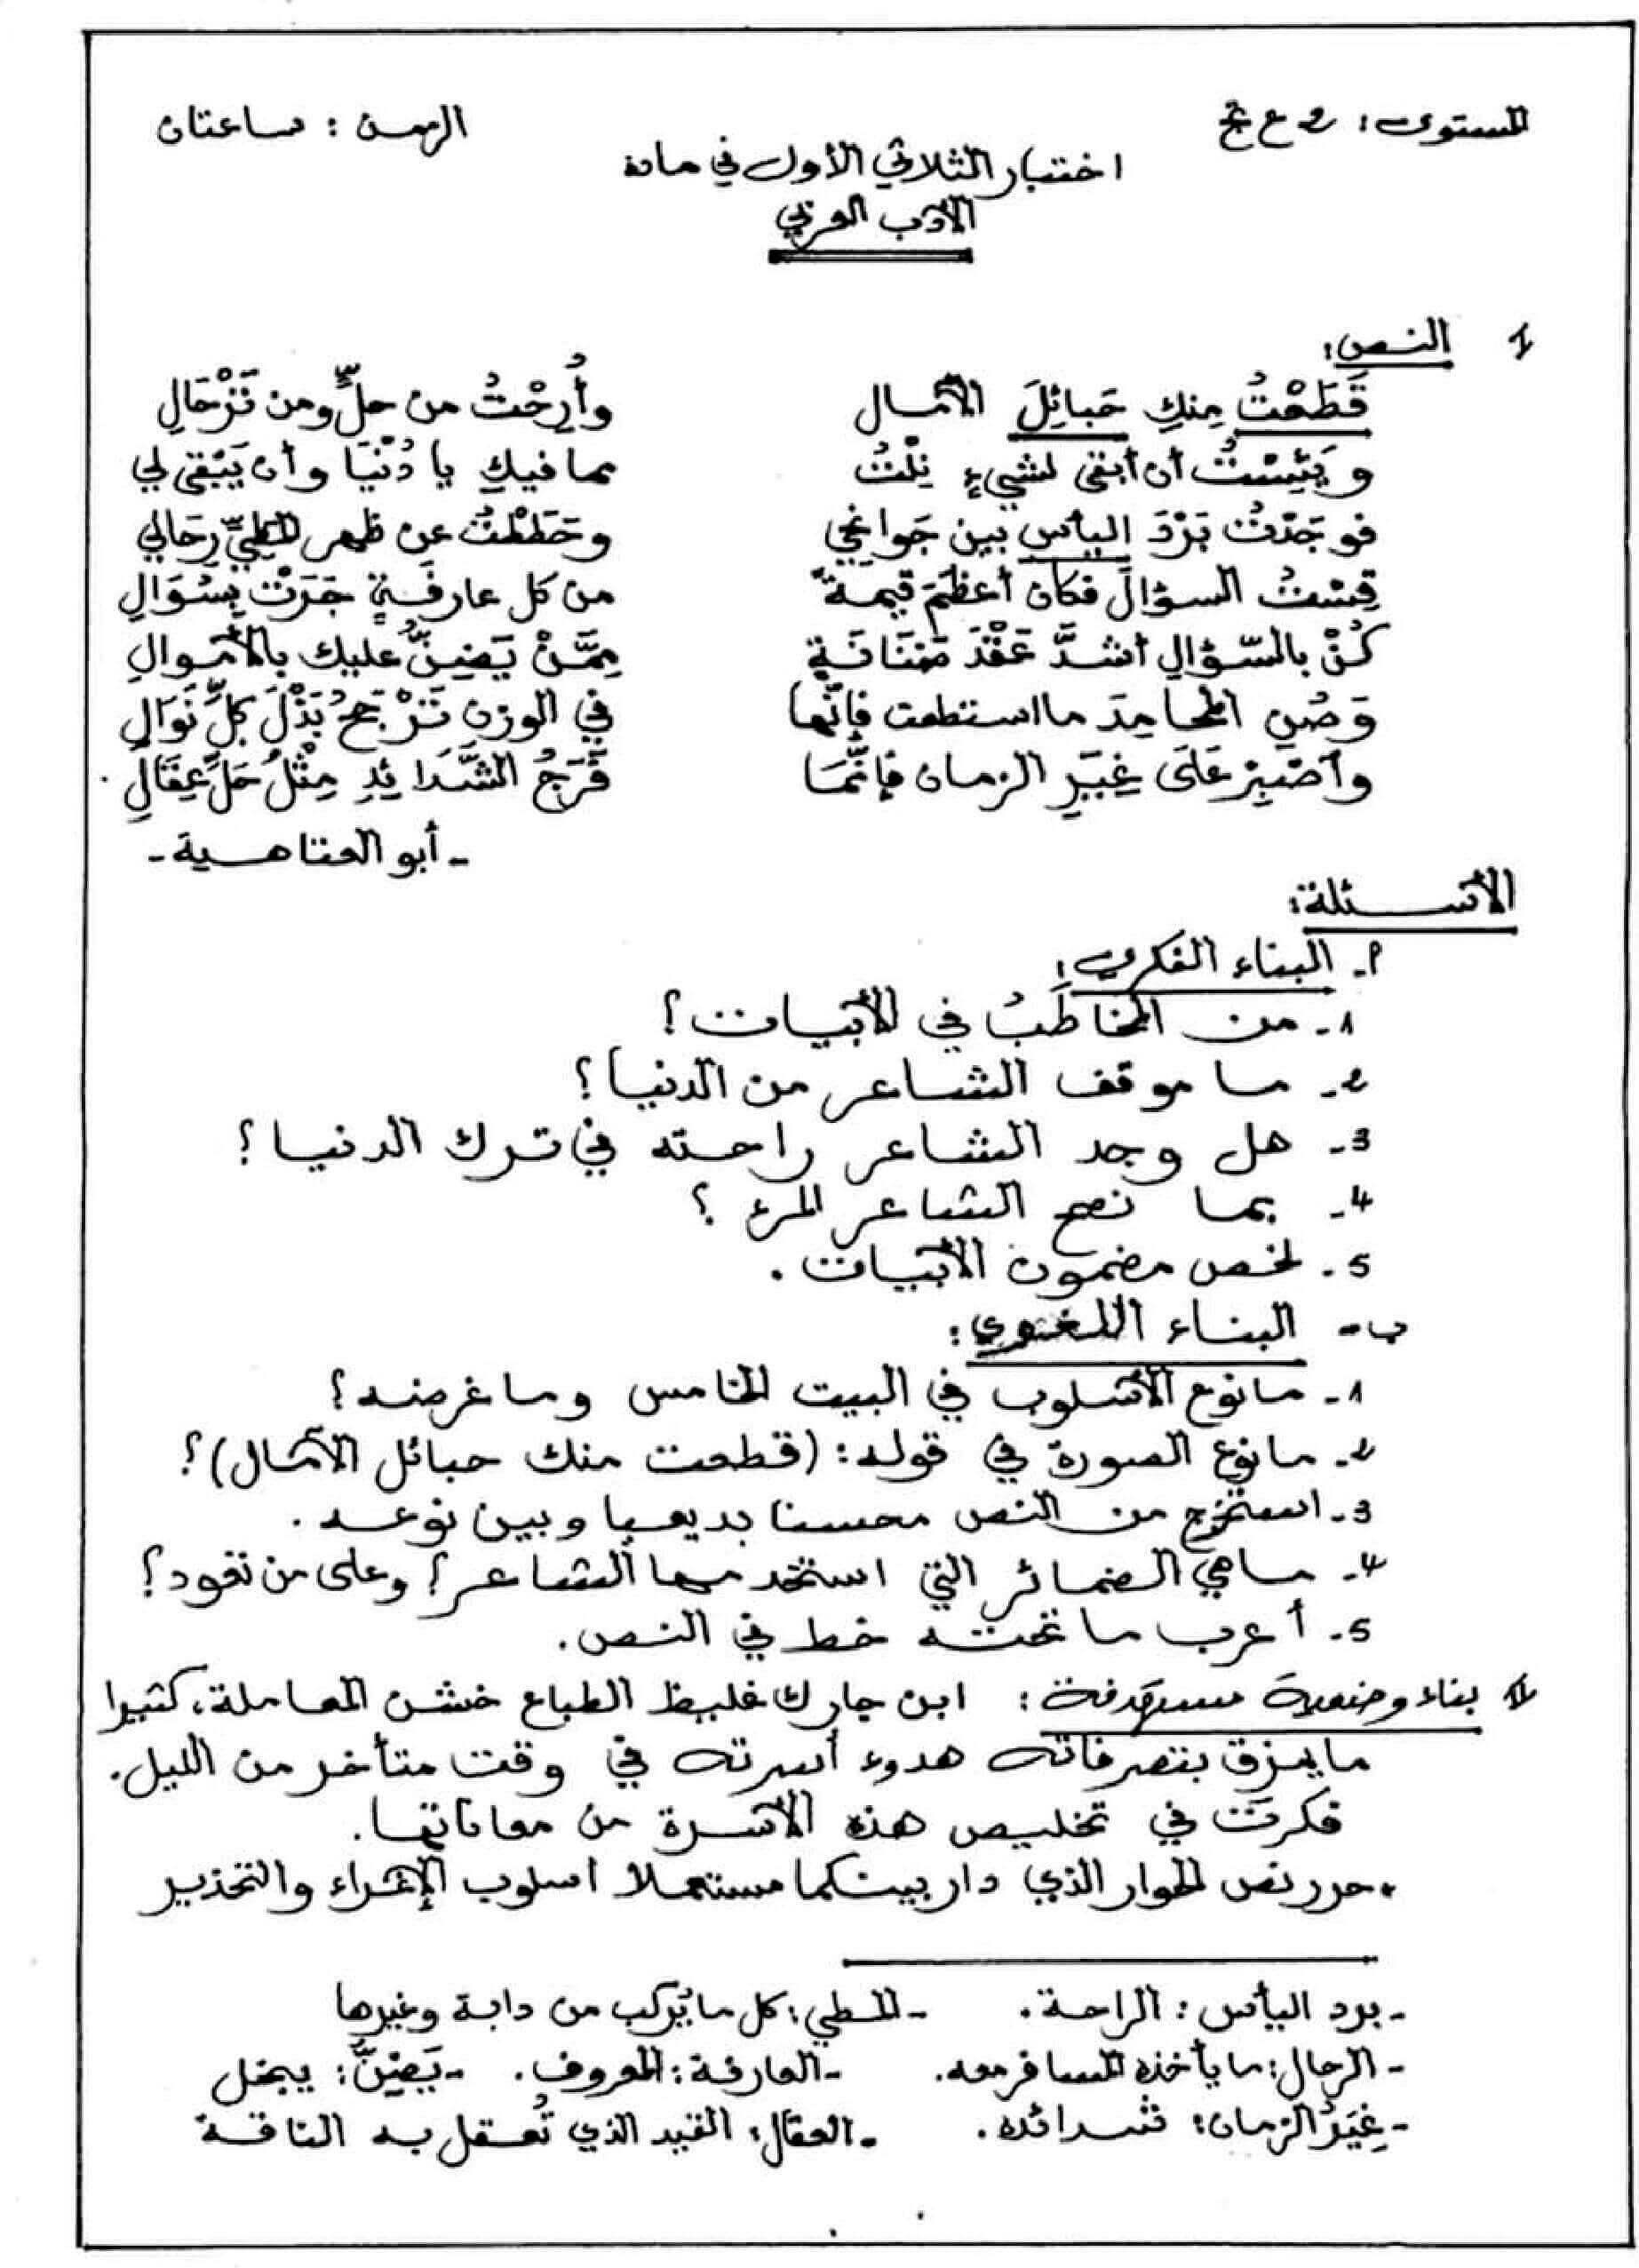 المستوى: 2 ع ت                                    الزمن: ساعتان
اختبار الثلاثي الأول في مادة
الأدب العربي
I النص:
قَطَعْتُ مِنكِ حَبائِلَ الآمـال                وأُرِحْتُ من حلٍّ ومن تَرْحَالِ
ويَئِسْتُ أن أبقى لشيءٍ نِلْتُ                مما فيكِ يا دُنْيَا وأن يَبْقى لي
فوجَدْتُ بَرْدَ اليأس بين جَوانحي                وحَطَطْتُ عن ظهر المَطِيِّ رِحَالي
قِسْتُ السؤالَ فكان أعظَمَ قيمةً                من كل عارفَةٍ جَرَتْ بِسُؤَالِ
كُنْ بالسّؤالِ أشدَّ عَقْدَ ضَنَانَةٍ                مِمَّنْ يَضِنُّ عليك بالأموالِ
وَصُنِ المحامِدَ ما استطعت فإنَّها                في الوزن تَرْجَحُ بَذْلَ كلِّ نَوَالِ
وأصْبِرْ عَلَى غِيَرِ الزمان فإنَّمَا                فَرَجُ الشَّدَائِدِ مِثْلُ حَلِّ عِقَالِ.
- أبو العتاهـية -
الأسـئلة:
أ- البناء الفكري:
1- من المخاطَبُ في الأبيات؟
2- ما موقف الشاعر من الدنيا؟
3- هل وجد الشاعر راحته في ترك الدنيا؟
4- بما نصح الشاعر المرء؟
5- لخص مضمون الأبيات.
ب- البناء اللغوي:
1- ما نوع الأسلوب في البيت الخامس وما غرضه؟
2- ما نوع الصورة في قوله: (قطعت منك حبائل الآمال)؟
3- استخرج من النص محسنا بديعيا وبين نوعه.
4- ما هي الضمائر التي استخدمها الشاعر؟ وعلى من تعود؟
5- أعرب ما تحته خط في النص.
II بناء وضعية مستهدفة: ابن جارك غليظ الطباع خشن المعاملة، كثيرا
ما يمزق بتصرفاته هدوء أسرته في وقت متأخر من الليل.
فكرتَ في تخليص هذه الأسرة من معاناتها.
• حرر نص الحوار الذي دار بينكما مستعملا أسلوب الإغراء والتحذير
- برد اليأس: الراحة.        - المطي: كل ما يُركب من دابة وغيرها
- الرحال: ما يأخذه المسافر معه.        - العارفة: المعروف.        - يَضِنُّ: يبخل
- غِيَرُ الزمان: شدائده.        - العقال: القيد الذي تُعقل به الناقة